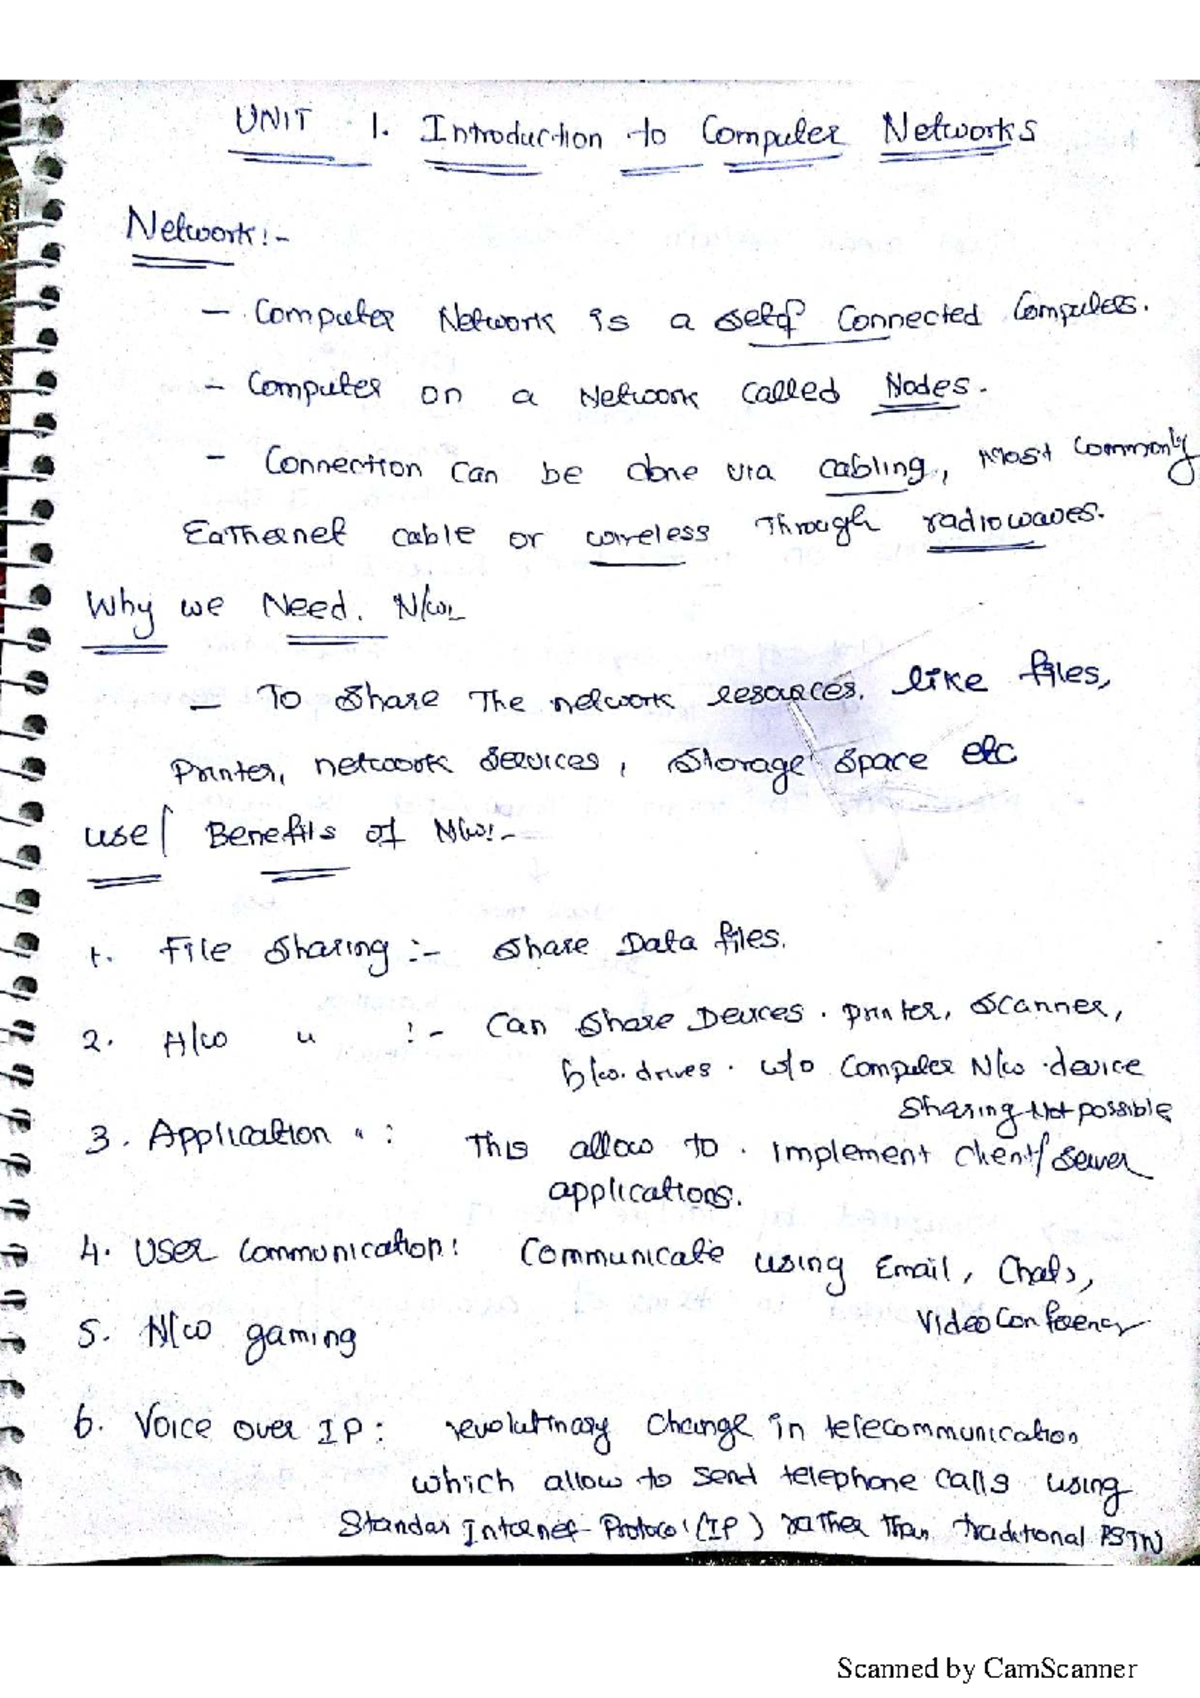 UNIT 1. Introduction to Computer Networks
Network:-
- Computer Network is a self connected Computers.
- Computer on a Network called Nodes.
- Connection can be done via cabling, most commonly
EaThernet cable or wireless Through radiowaves.
Why we Need. N/w
- To share The network resources. like files,
Printer, network services, storage space etc
use/ Benefits of N/w:-
1. File sharing :- share Data files.
2. H/w " :- Can share Devices. printer, scanner,
h/w. drives. w/o Computer N/w device
sharing Not possible
3. Application " : This allow to implement client/server
applications.
4. User communication: Communicate using Email, Chats,
Video Conferency
5. N/w gaming
6. Voice over IP: revolutinary change in telecommunication
which allow to send telephone calls using
Standar Internet Protocol (IP) rather than traditional PSTN
Scanned by CamScanner